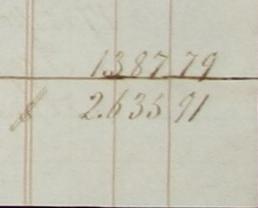 1387 79
2.635 91